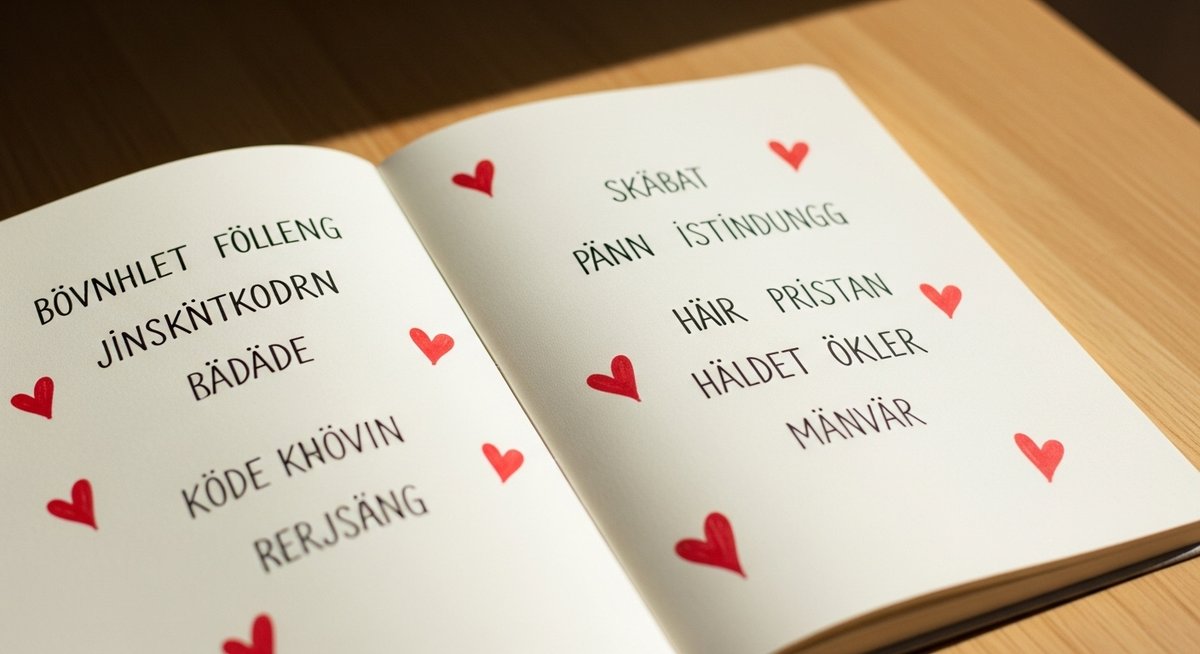 BÖVNHLET FÖLLENG
JINSKÄNTKODRN
BÄDÄDE
KÖDE KHÖVIN
RERJSÄNG
SKÄBAT
PÄNN İSTİNDUNGG
HÄIR PRİSTAN
HÄLDET ÖKLER
MÄNVÄR